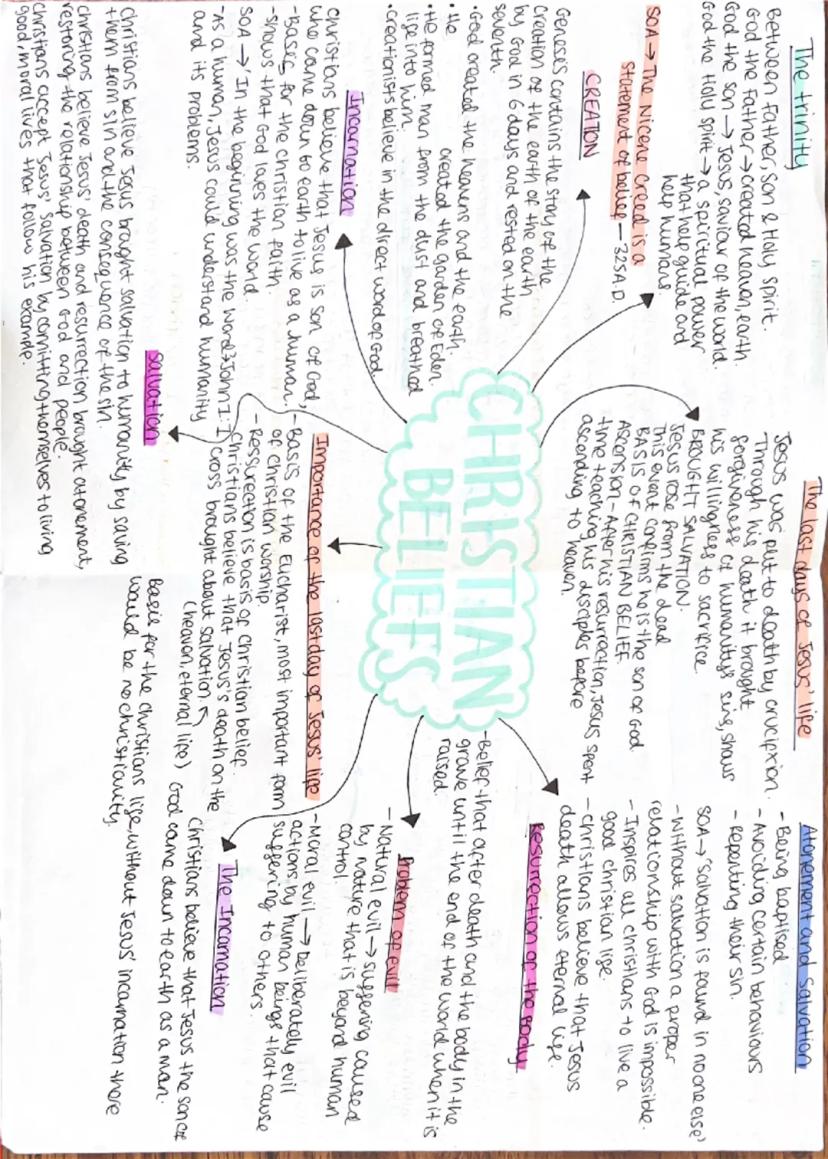 The trinity
Between Father, Son & Holy Spirit.
God the Father → created heaven, earth.
God the son → Jesus, saviour of the world.
God the Holy spirit → a spiritual power
that help guide and
help humans.
SOA → The Nicene Creed is a
statement of belief — 325 A.D.
CREATION
Genesis contains the story of the
creation of the earth of the earth
by God in 6 days and rested on the
seventh.
• God created the heavens and the earth.
• the created the garden of Eden.
• He formed man from the dust and breathed
life into him.
• creationists believe in the direct word of God
Incarnation
Christians believe that Jesus is son of God,
who came down to earth to live as a human.
- Basis for the christian faith.
- Shows that God loves the world.
SOA → 'In the beginning was the word' John 1:1
- As a human, Jesus could understand humanity
and its problems.
Salvation
Christians believe Jesus brought salvation to humanity by saving
them from sin and the consequence of the sin.
Christians believe Jesus' death and resurrection brought atonement,
restoring the relationship between God and people.
Christians accept Jesus' salvation by comitting themselves to living
good, moral lives that follow his example.
CHRISTIAN
BELIEFS
The last days of Jesus' life
Jesus was put to death by crucifixion.
Through his death it brought
forgiveness of humanity's sins, shows
his willingness to sacrifice.
BROUGHT SALVATION.
Jesus rose from the dead
This event confirms he is the son of God
BASIS OF CHRISTIAN BELIEF
Ascension - After his resurrection, Jesus spent
time teaching his disciples before
ascending to heaven.
Importance of the last day of Jesus' life
- Basis of the Eucharist, most important form
of christian worship.
- Ressurection is basis of christian belief.
Christians believe that Jesus's death on the
cross brought about salvation
(heaven, eternal life)
Atonement and salvation
- Being baptised
- Avoiding certain behaviours
- Repenting their sin.
SOA → 'Salvation is found in no one else'
- Without salvation a proper
relationship with God is impossible.
- Inspires all christians to live a
good christian life.
- Christians believe that Jesus
death allows eternal life.
Resurrection of the body
- Belief that after death and the body in the
grave until the end of the world when it is
raised.
Problem of evil
- Natural evil → suffering caused
by nature that is beyond human
control.
- Moral evil → Deliberately evil
actions by human beings that cause
suffering to others.
The Incarnation
Christians believe that Jesus the son of
God came down to earth as a man.
Basis for the christians life, without Jesus' incarnation there
would be no christianity.